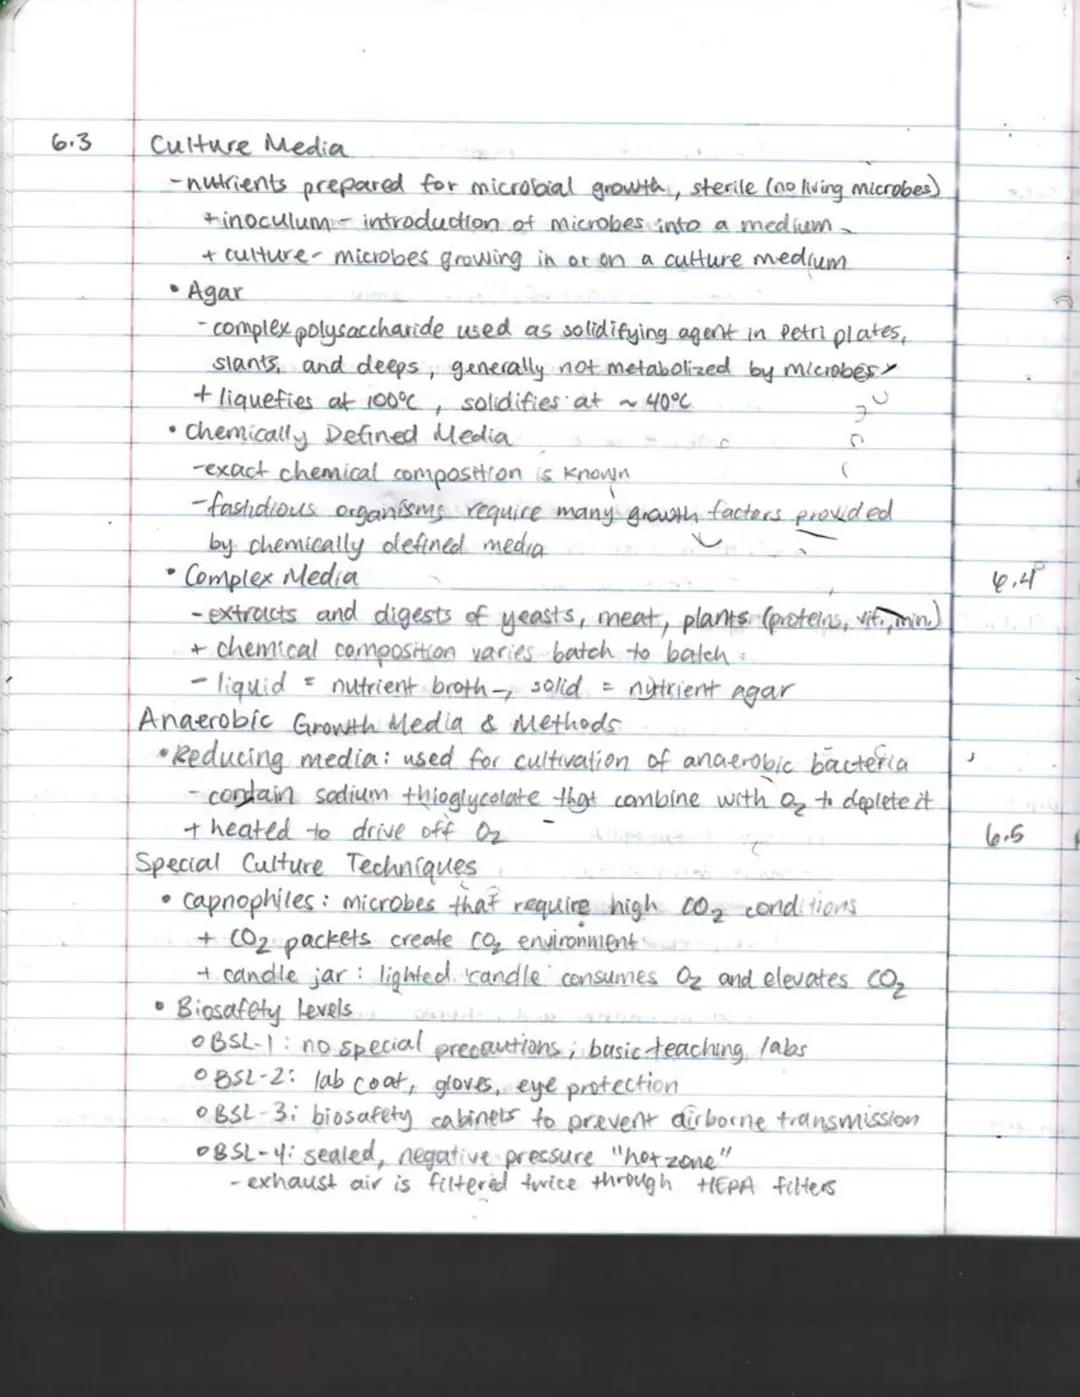 6.3 Culture Media
-nutrients prepared for microbial growth, sterile (no living microbes)
+inoculum - introduction of microbes into a medium
+ culture - microbes growing in or on a culture medium
• Agar
-complex polysaccharide used as solidifying agent in Petri plates,
slants, and deeps, generally not metabolized by microbes
+ liquefies at 100°C, solidifies at ~ 40°C
• Chemically Defined Media
-exact chemical composition is known
-fastidious organisms require many growth factors provided
by chemically defined media
• Complex Media
-extracts and digests of yeasts, meat, plants (proteins, vit., min.)
+ chemical composition varies batch to batch
- liquid = nutrient broth, solid = nutrient agar
Anaerobic Growth Media & Methods
• Reducing media: used for cultivation of anaerobic bacteria
- contain sodium thioglycolate that combine with O₂ to deplete it
+ heated to drive off O₂
Special Culture Techniques
• capnophiles: microbes that require high CO₂ conditions
+ CO₂ packets create CO₂ environment
+ candle jar: lighted candle consumes O₂ and elevates CO₂
• Biosafety Levels
o BSL-1: no special precautions; basic teaching labs
o BSL-2: lab coat, gloves, eye protection
o BSL-3: biosafety cabinets to prevent airborne transmission
o BSL-4: sealed, negative pressure "hot zone"
- exhaust air is filtered twice through HEPA filters
6.4
6.5